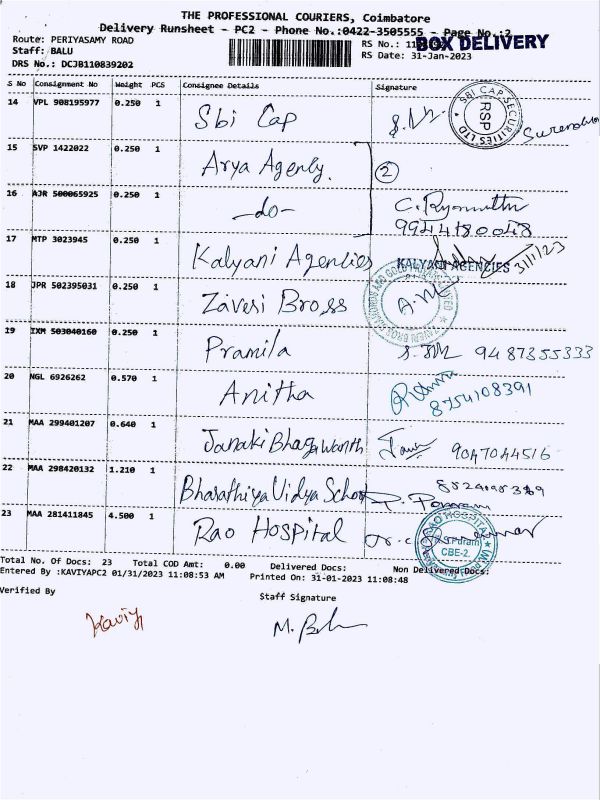 THE PROFESSIONAL COURIERS, Coimbatore
Delivery Runsheet - PC2 - Phone No.:0422-3505555 - Page No.:2
Route: PERIYASAMY ROAD
RS No.: 11
BOX DELIVERY
Staff: BALU
RS Date: 31-Jan-2023
DRS No.: DCJB110839202
S No Consignment No Weight PCS Consignee Details Signature
14 VPL 908195977 0.250 1 Sbi Cap
SBI CAP SECURITIES LTD
RSP
15 SVP 1422022 0.250 1 Arya Agenly. 2
16 AJR 500065925 0.250 1 -do- C.
9944180048
17 MTP 3023945 0.250 1 Kalyani Agencies KALYANI AGENCIES 31/1/23
18 JPR 502395031 0.250 1 Zaveri Bross
19 IXM 503040160 0.250 1 Pramila 9487355333
20 NGL 6926262 0.570 1 Anitha
8754108391
21 MAA 299401207 0.640 1 Janaki Bhagawanth 9047044516
22 MAA 298420132 1.210 1 Bharathiya Vidya School
23 MAA 281411845 4.500 1 Rao Hospital
RAO HOSPITAL
CBE-2.
Total No. Of Docs: 23 Total COD Amt: 0.00 Delivered Docs: Non Delivered Docs:
Entered By :KAVIYAPC2 01/31/2023 11:08:53 AM Printed On: 31-01-2023 11:08:48
Verified By Staff Signature
Kaviya